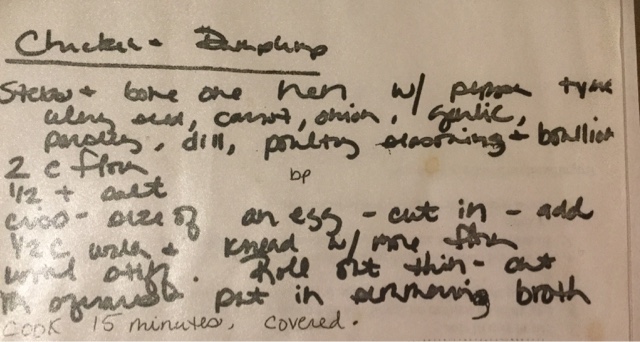 Chicken + Dumplings
Stew + bone one hen w/ pepper thyme
celery seed, carrot, onion, garlic,
parsley, dill, poultry seasoning + boullion
2 c flour
bp
1/2 t salt
crisco - size of an egg - cut in - add
1/2 c water + knead w/ more flour
until stiff. Roll out thin - cut
in squares + put in simmering broth
COOK 15 minutes, covered.